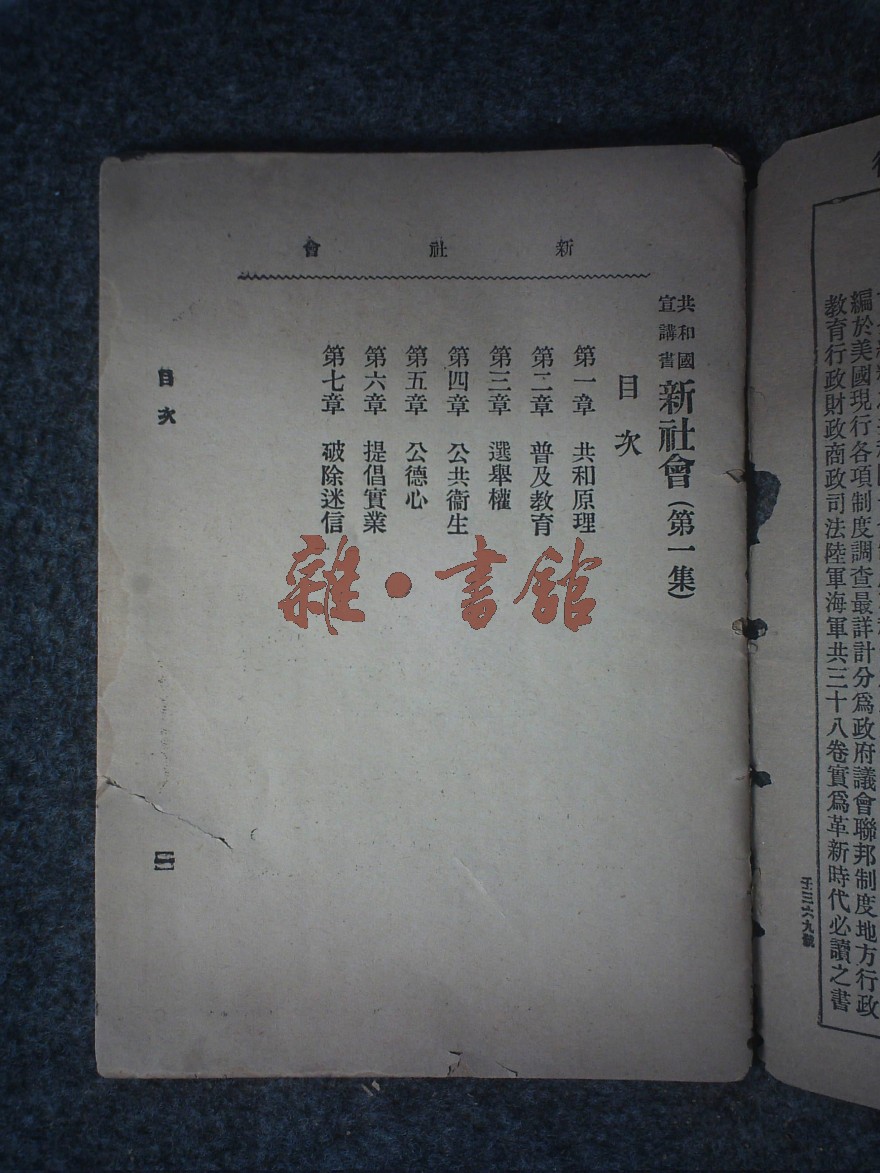 新社會
共和國宣講書 新社會(第一集)
目次
第一章 共和原理
第二章 普及教育
第三章 選舉權
第四章 公共衞生
第五章 公德心
第六章 提倡實業
第七章 破除迷信
目次
一
雜・書館
編於美國現行各項制度調查最詳計分爲政府議會聯邦制度地方行政
教育行政財政商政司法陸軍海軍共三十八卷實爲革新時代必讀之書
壬三六九號